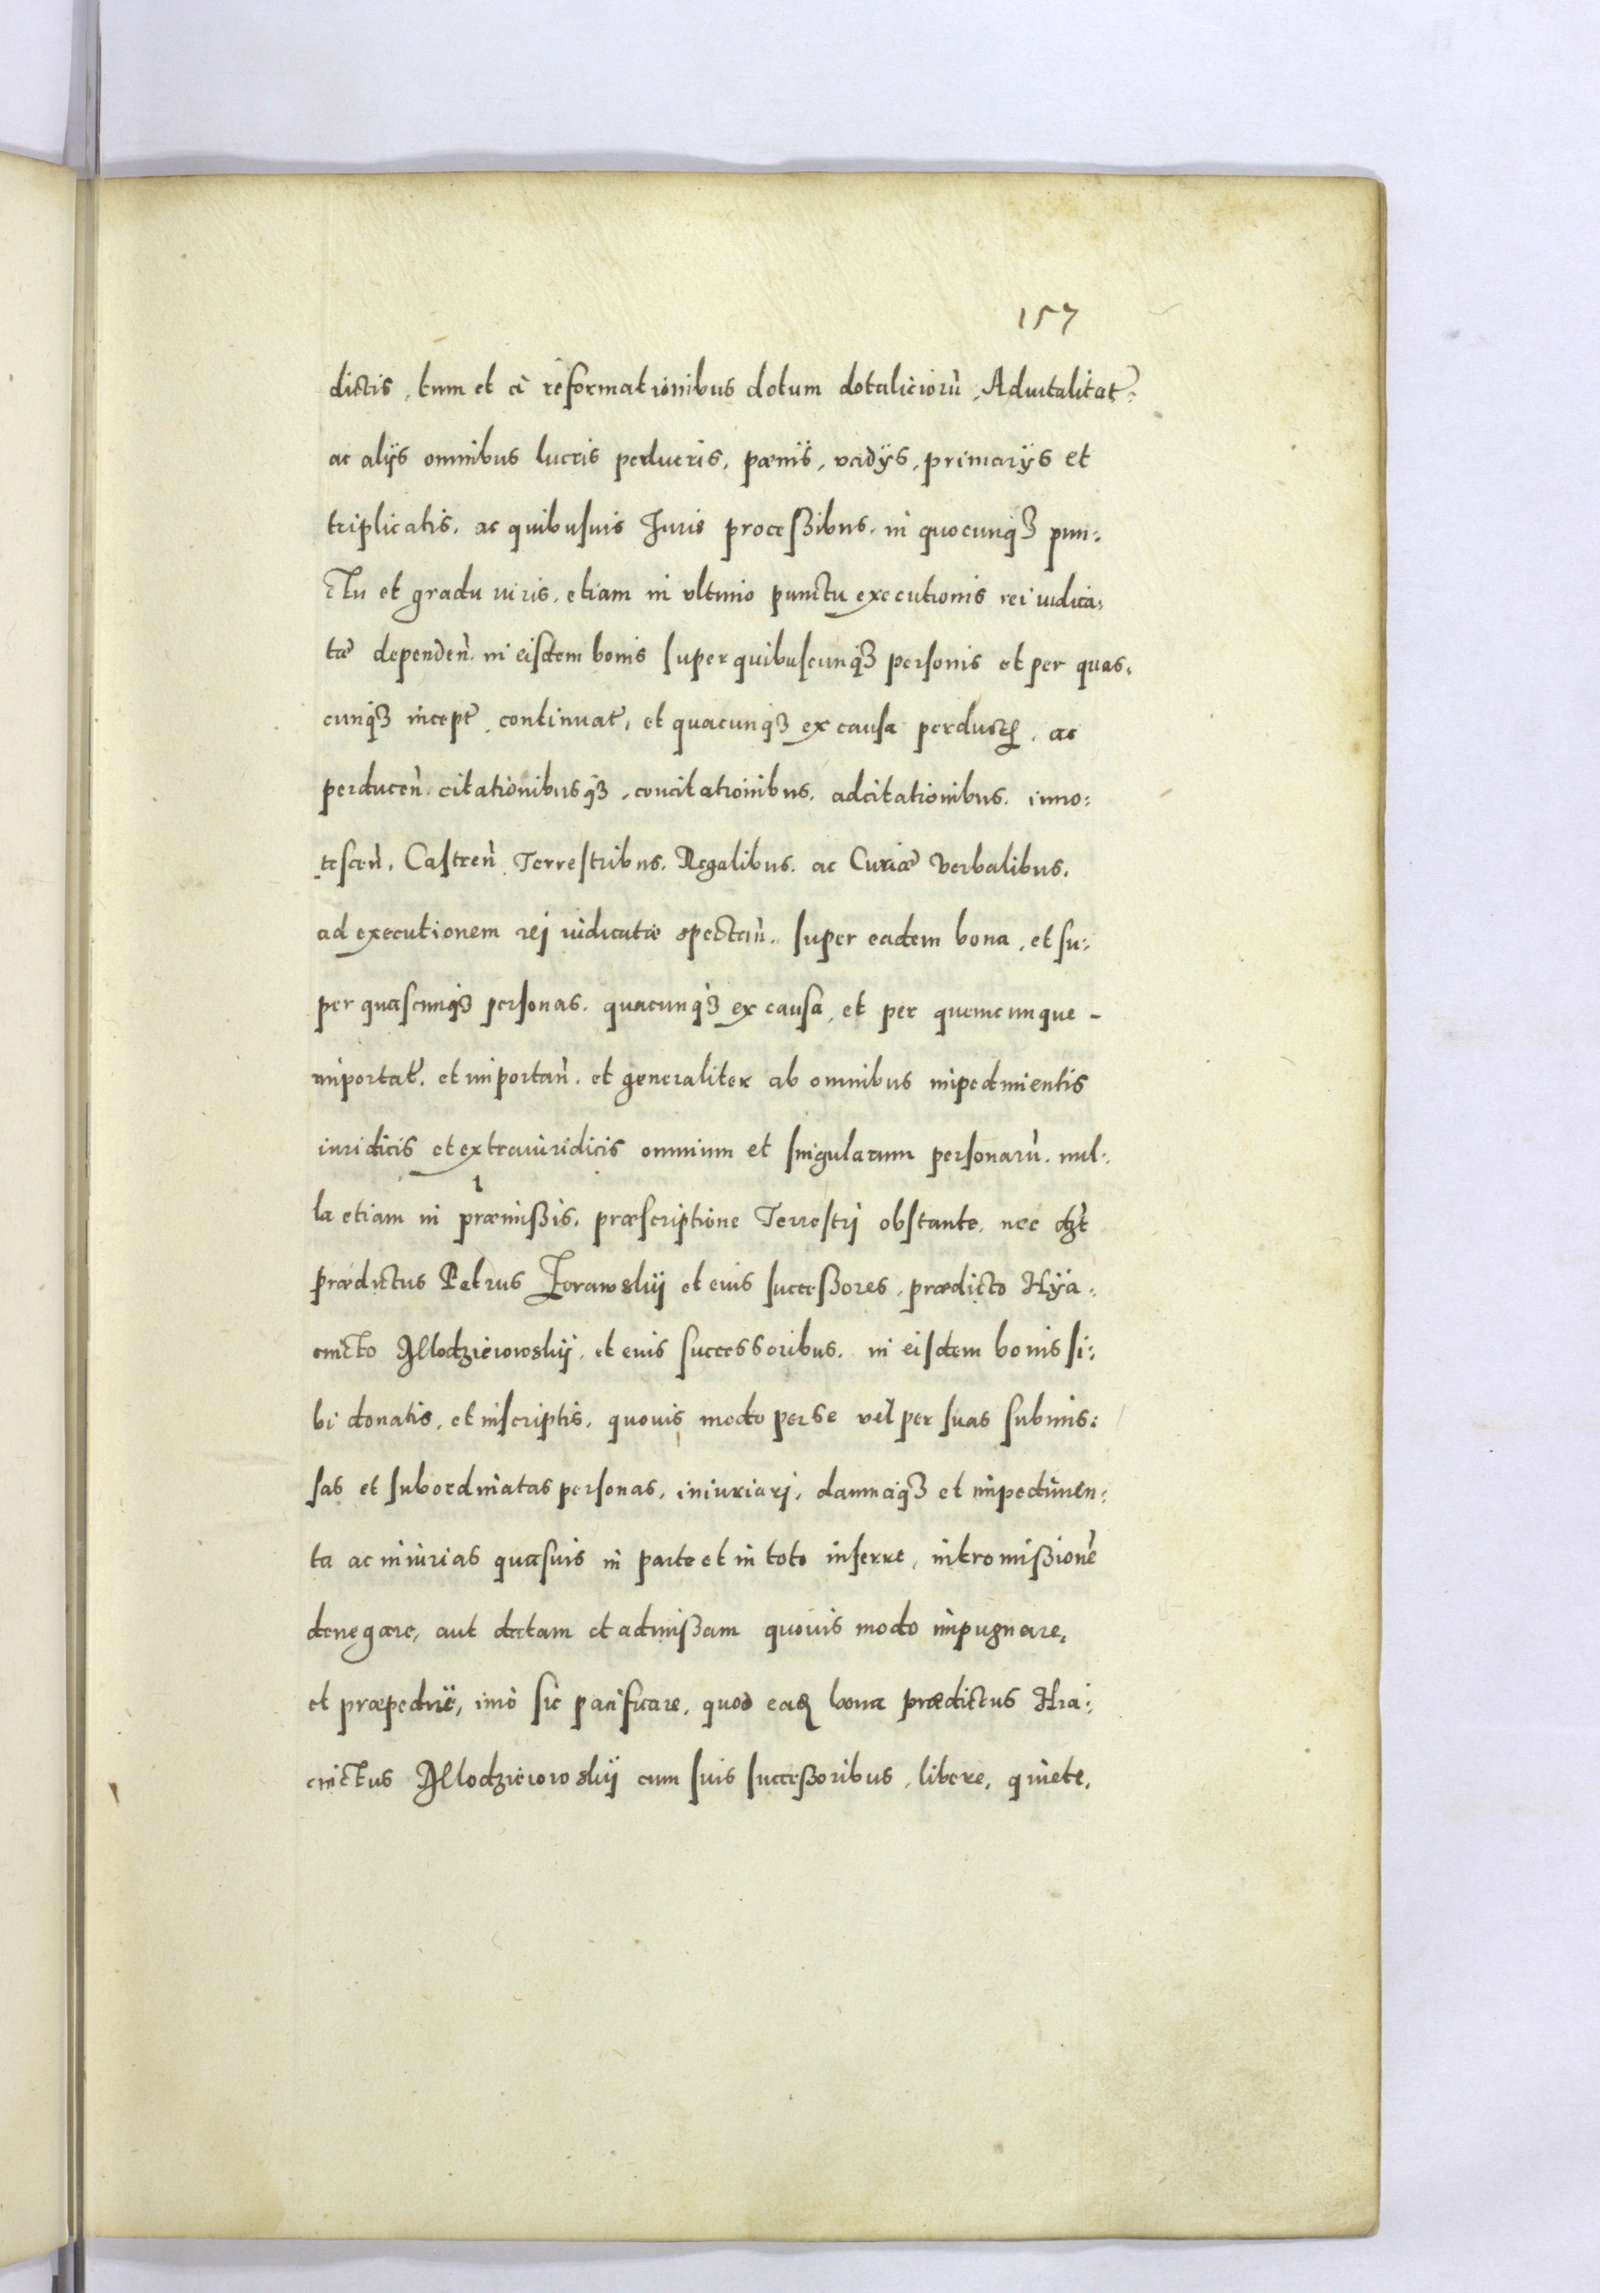 157
dictis, tum et à reformationibus dotum dotaliciorù, Aduitalitat:
ac alijs omnibus lucris perlucris, pœnis, vadijs, primarijs et
triplicatis, ac quibusuis Juris processibus, in quocunqȝ pun:
ctu et gradu iuris, etiam in vltimo punctu executionis rei iudica:
tæ dependeñ. in eisdem bonis super quibuscunqȝ personis et per quas:
cunqȝ incept, continuat, et quacunqȝ ex causa perduct, ac
perduceñ. citationibusqȝ, concitationibus, adcitationibus, inno:
tesceñ, Castreñ Terrestribus, Regalibus, ac Curiæ verbalibus,
ad executionem rej iudicatæ spectañ. super eadem bona, et su:
per quascunqȝ personas, quacunqȝ ex causa, et per quemcunque -
importat, et importañ, et generaliter ab omnibus impedimentis
iuridicis et extraiuridicis omnium et singularum personarù, nul:
la etiam in præmissis, præscriptione Terrestrj obstante, nec
prædictus Petrus Zorawskij et eius successores, prædicto Hÿa:
cincto Mlodziewowskij, et eius successoribus, in eisdem bonis si:
bi donatis, et inscriptis, quouis modo per se vel per suas submis:
sas et subordinatas personas, iniuriarj, damnaqȝ et impedimen:
ta ac iniurias quasuis in parte et in toto inferre, intromissionē
denegare, aut datam et admissam quouis modo impugnare,
et præpedire, imò sic pacificare, quod bona prædictus Hia:
cinctus Mlodziewowskij cum suis successoribus, libere, quiete,